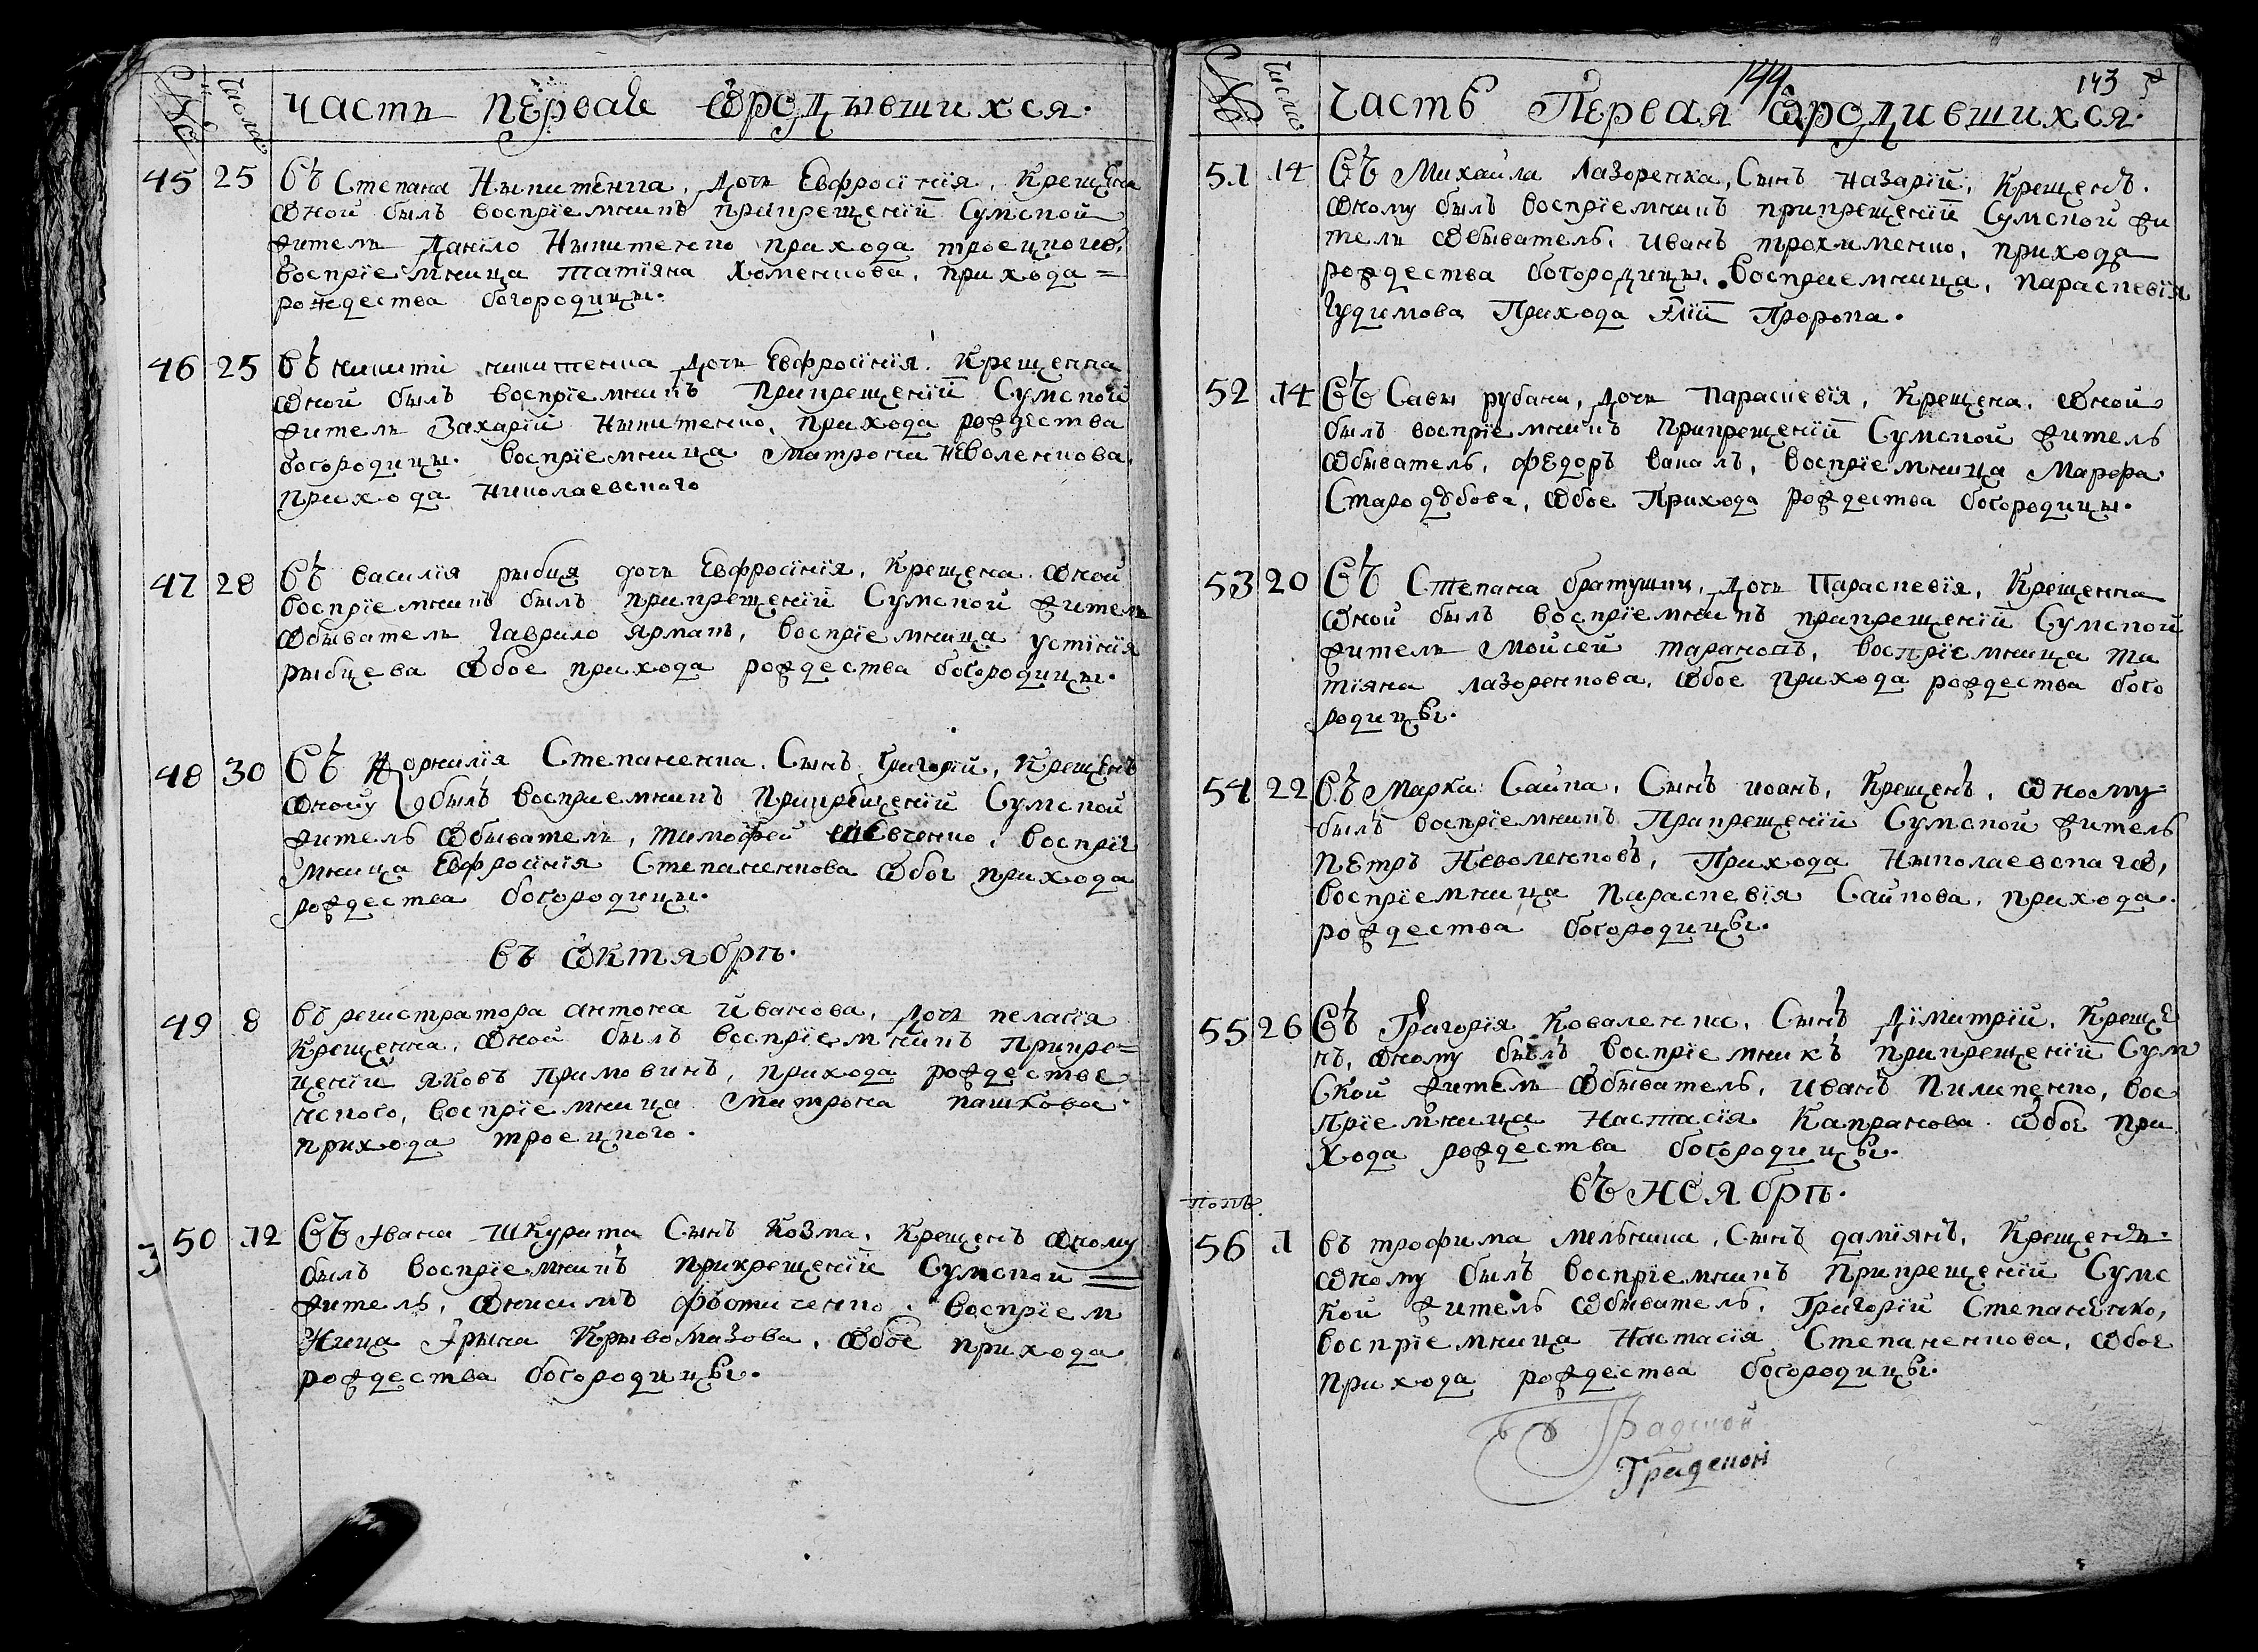 № Числа Часть первая ѿродывшихся.
45 25 ВЪ Степана Ныпитенка, дочь Евфросїнїя, Крещена
Ѡной былъ воспрїемникъ прикрещенїй Сумской
житель Данїло Никитенко прихода троецкого,
воспрїемница татїяна Хоменкова, прихода =
рождества богородицы.
46 25 ВЪ никити никитенка дочь Евфросїнїя. Крещенна
Ѡной былъ воспрїемникъ Прикрещенїй Сумской
житель Захарїй Никитенко, прихода рождества
богородицы. воспрїемница Матрона Неволенкова,
прихода николаевского
47 28 ВЪ василїя рыбця дочь Евфросїнїя, Крещена. Ѡной
воспрїемникъ былъ прикрещенїй Сумской житель
Ѡбыватель гаврило ярмакъ, воспрїемница устїнїя
рыбцева Ѡбое прихода рождества богородицы.
48 30 ВЪ Корнилїя Степаненка. Сынъ Григорїй, Крещенъ
Ѡному былъ восприемникъ Прикрещенїй Сумской
житель Ѡбыватель, тимофей шевченко, воспрїе
мница Евфросїнїя Степаненкова Ѡбое прихода
рождества богородицы.
въ Ѡктябрѣ.
49 8 въ регистратора антона Иванова, дочь пелагїя
Крещенна, Ѡной былъ воспрїемникъ Прикре=
щенїи яковъ Примовинъ, прихода рождестве
нского, воспрїемница Матрона пашкова.
прихода троецкого.
50 12 ВЪ Ивана Шкурата Сынъ Козма, Крещенъ Ѡному
былъ воспрїемникъ прикрещенїй Сумской =
житель, Ѡнисимъ фостиченко. воспрїем
Ница Ирына Крывомазова, Ѡбое прихода
рождества богородицы.
144 143
№ Числа Часть Первая Ѡродившихся.
51 14 ВЪ Михайла Лазоренка, Сынъ назарїй, Крещенъ.
Ѡному былъ воспрїемникъ прикрещенїй Сумской жи
тель Ѡбыватель, иванъ трохименко, прихода
рождества богородицы, восприемница, параскевїя
Гудимова Прихода Илїй Пророка.
52 14 ВЪ Савы рубана, дочь Параскевїя, Крещена, Ѡной
былъ воспрїемникъ Прикрещенїй Сумской житель
Ѡбыватель, федоръ вакалъ, воспрїемница Марфа
Стародубова, Ѡбое Прихода рождества богородицы.
53 20 ВЪ Степана братушки, дочь Параскевїя, Крещенна
Ѡной былъ воспрїемникъ прикрещенїй Сумской
житель Мойсей таранокъ, воспрїемница та
тїяна лазоренкова, Ѡбое Прихода рождества бого
родицы.
54 22 ВЪ Марка Сайка, Сынъ иоанъ, Крещенъ, Ѡному=
былъ воспрїемникъ Прикрещенїй Сумской житель
Петръ Неволенковъ, Прихода Ныколаевскаго,
воспрїемница Параскевїя Сайкова, прихода
рождества богородицы.
55 26 ВЪ Григорїя Коваленка, Сынъ Дїмитрїй, Креще
нъ, Ѡному былъ воспрїемникъ прикрещенїй Сум
Ской житель Ѡбыватель, иванъ Пилипенко, вос
прїемница Настасїя Капранова. Ѡбое При
хода рождества богородицы.
въ ноябрѣ.
56 1 въ трофима мельника, Сынъ дамїянъ, Крещенъ.
Ѡному былъ воспрїемникъ Прикрещенїй Сумс
кой житель Ѡбыватель, Григорїй Степаненко,
воспрїемница Настасїя Степаненкова, Ѡбое
Прихода рождества богородицы.